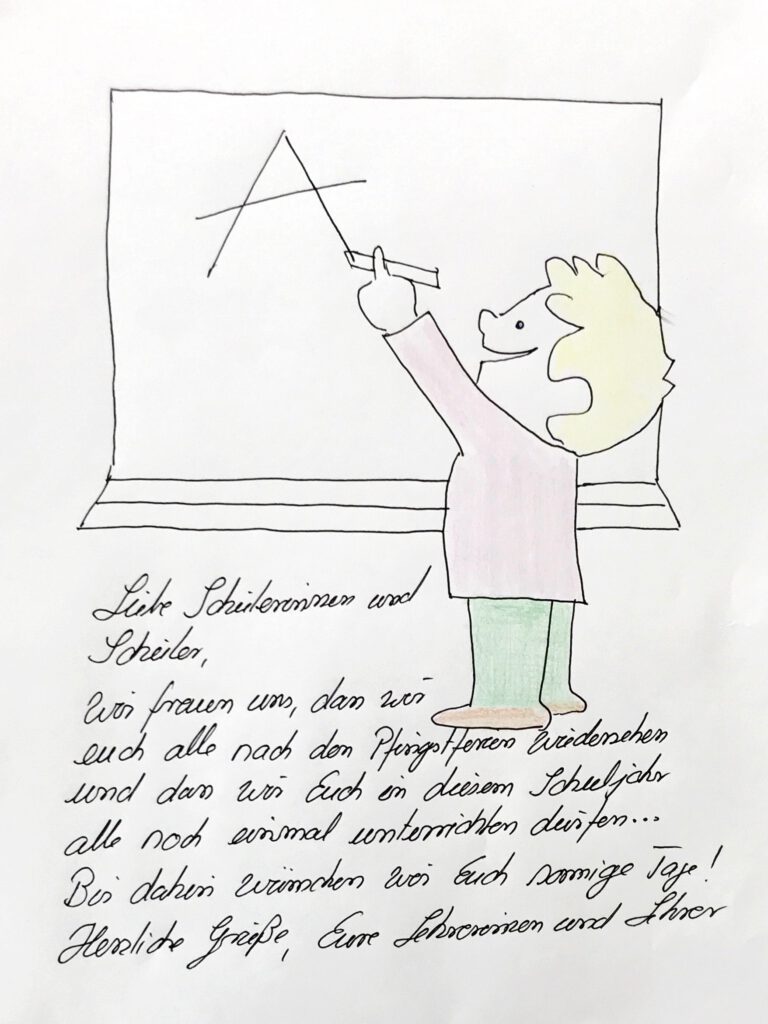 A
Liebe Schülerinnen und
Schüler,
wir freuen uns, dass wir
euch alle nach den Pfingstferien wiedersehen
und dass wir Euch in diesem Schuljahr
alle noch einmal unterrichten dürfen...
Bis dahin wünschen wir Euch sonnige Tage!
Herzliche Grüße, Eure Lehrerinnen und Lehrer